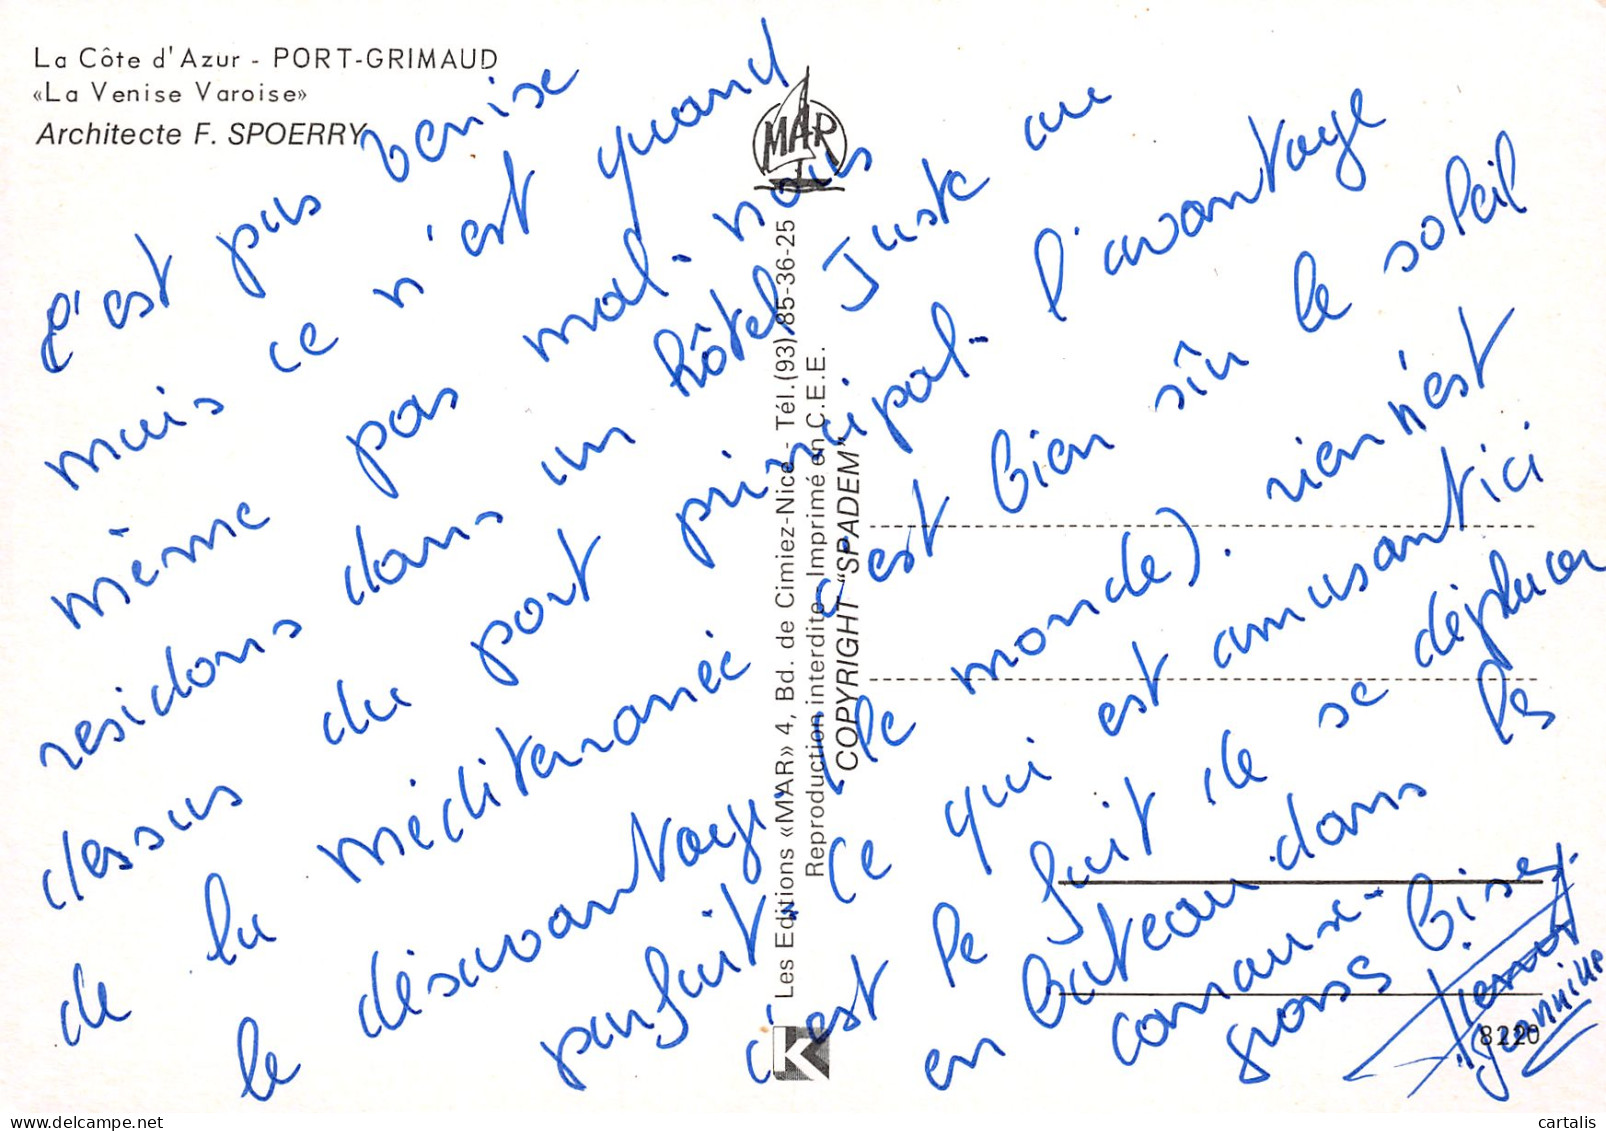 La Côte d'Azur - PORT-GRIMAUD
«La Venise Varoise»
Architecte F. SPOERRY
c'est pas venise
mais ce n'est quand
même pas mal. nous
residons dans un hôtel juste au
dessus du port principal. l'avantage
de la méditerranée c'est bien sûr le soleil
le désavantage, le monde). rien n'est
parfait. Ce qui est amusant ici
c'est le fait de se déplacer
en bateau dans les
canaux.
gross bises
Jeannine
MAR
Les Editions «MAR» 4, Bd. de Cimiez-Nice - Tél.(93) 85-36-25
Reproduction interdite Imprimé en C.E.E.
COPYRIGHT "SPADEM"
K
8220
cartalis
delcampe.net